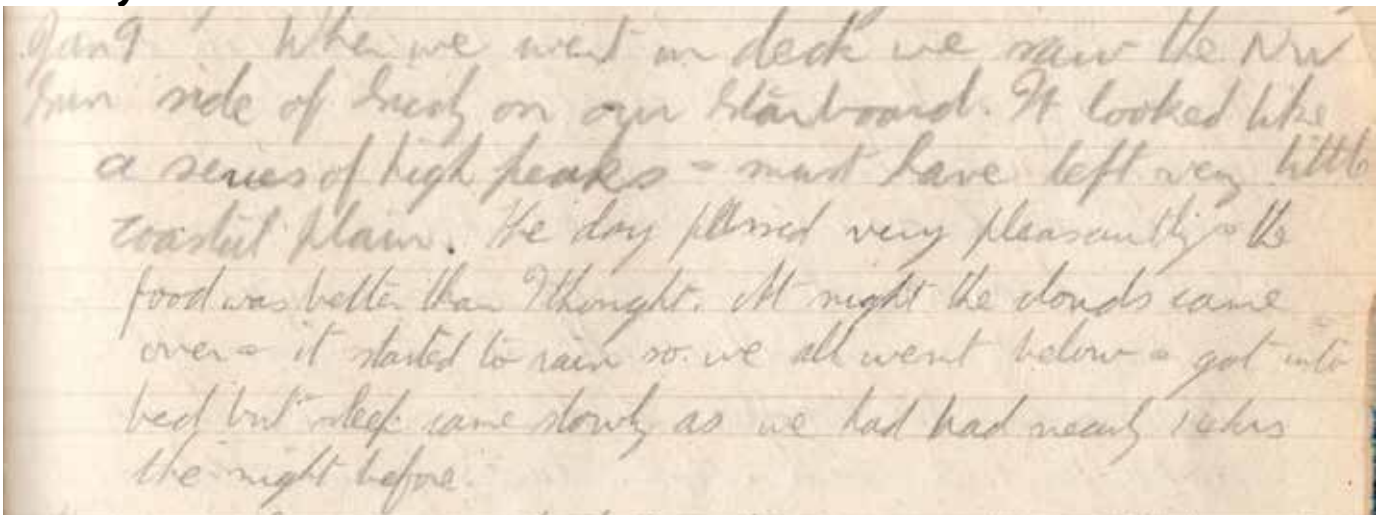 Jan 9 When we went on deck we saw the NW
Sun side of Sicily on our starboard. It looked like
a series of high peaks - must have left very little
coastal plain. The day passed very pleasantly - the
food was better than I thought. At night the clouds came
over - it started to rain so we all went below - got into
bed but sleep came slowly as we had had nearly hrs
the night before.